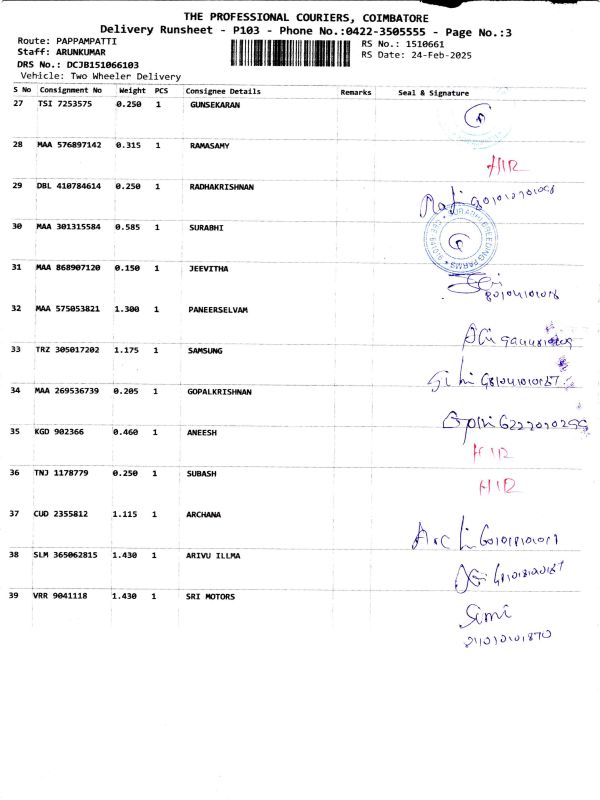 THE PROFESSIONAL COURIERS, COIMBATORE
Delivery Runsheet - P103 - Phone No.:0422-3505555 - Page No.:3
Route: PAPPAMPATTI
RS No.: 1510661
Staff: ARUNKUMAR
RS Date: 24-Feb-2025
DRS No.: DCJB151066103
Vehicle: Two Wheeler Delivery
S No Consignment No Weight PCS Consignee Details Remarks Seal & Signature
27 TSI 7253575 0.250 1 GUNSEKARAN
28 MAA 576897142 0.315 1 RAMASAMY
29 DBL 410784614 0.250 1 RADHAKRISHNAN
30 MAA 301315584 0.585 1 SURABHI
31 MAA 868907120 0.150 1 JEEVITHA
32 MAA 575053821 1.300 1 PANEERSELVAM
33 TRZ 305017202 1.175 1 SAMSUNG
34 MAA 269536739 0.205 1 GOPALKRISHNAN
35 KGD 902366 0.460 1 ANEESH
36 TNJ 1178779 0.250 1 SUBASH
37 CUD 2355812 1.115 1 ARCHANA
38 SLM 365062815 1.430 1 ARIVU ILLMA
39 VRR 9041118 1.430 1 SRI MOTORS